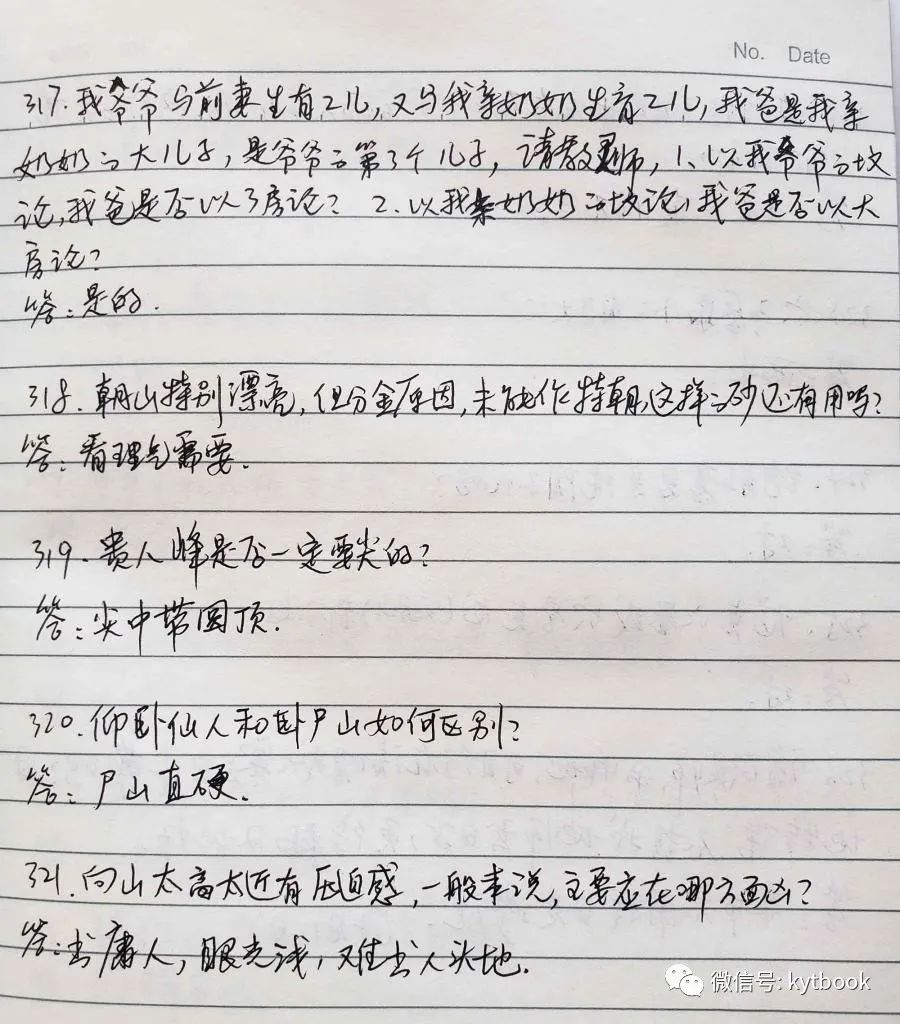 No. Date
317.我爷爷与前妻生有2儿,又与我亲奶奶生育2儿,我爸是我亲
奶奶的大儿子,是爷爷的第3个儿子,请教师,1、以我爷爷的坟
论,我爸是否以3房论? 2.以我亲奶奶的坟论,我爸是否以大
房论?
答:是的.
318.朝山特别漂亮,但分金原因,未能作特朝,这样的砂还有用吗?
答:看理气需要.
319.贵人峰是否一定要尖的?
答:尖中带圆顶.
320.仰卧仙人和卧尸山如何区别?
答:尸山直硬.
321.向山太高太近有压迫感,一般来说,主要应在哪方面凶?
答:出庸人,眼光浅,难出人头地.
微信号: kytbook